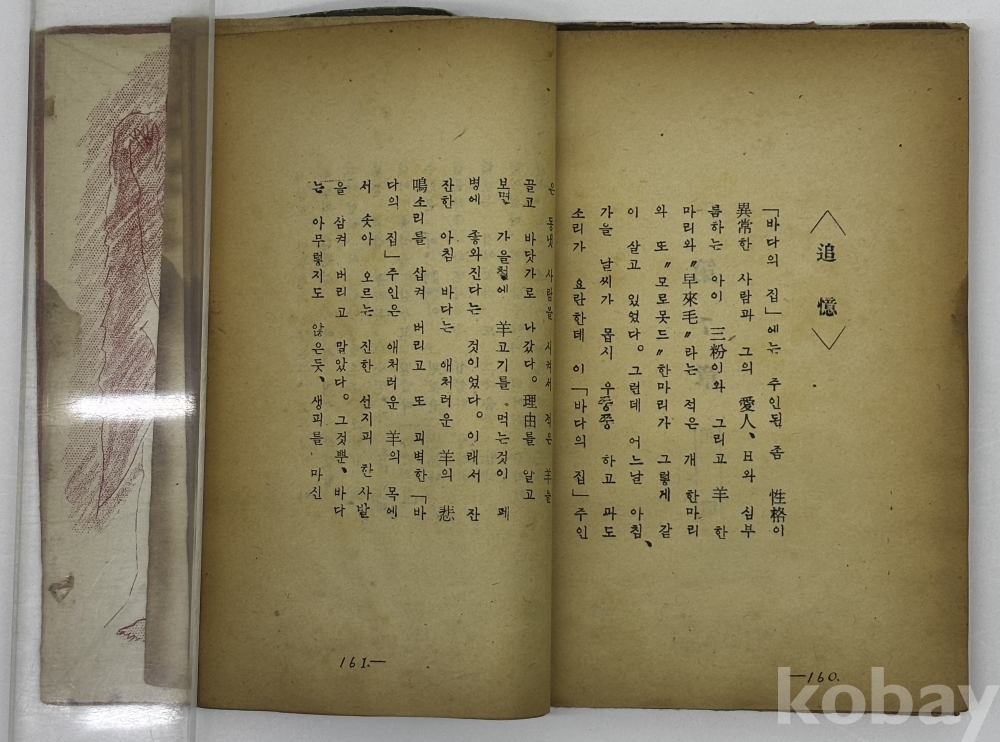 追憶
「바다의 집」에는 주인된 좀 性格이
異常한 사람과 그의 愛人、日와 심부
름하는 아이 三粉이와 그리고 羊 한
마리와〃早來毛〃라는 적은 개 한마리
와 또〃모로못드〃한마리가 그렇게 같
이 살고 있었다。그런데 어느날 아침、
가을 날씨가 몹시 우중쭝 하고 파도
소리가 요란한데 이「바다의 집」주인
은 동냇 사람을 시켜서 적은 羊을
끌고 바닷가로 나갔다。理由를 알고
보면 가을철에 羊고기를 먹는것이 폐
병에 좋와진다는 것이었다。이래서 잔
잔한 아침 바다는 애처러운 羊의 悲
鳴소리를 삽켜 버리고 또 괴벽한「바
다의 집」주인은 애처러운 羊의 목에
서 솟아 오르는 진한 선지피 한사발
을 삼켜 버리고 말았다。그것뿐、바다
는 아무렇지도 않은듯、생피를 마신
—160.
161.—
kobay